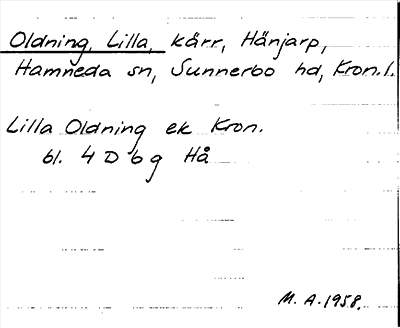 Oldning, Lilla, kärr, Hänjarp,
Hamneda sn, Sunnerbo hd, Kron. l.
Lilla Oldning ek Kron.
bl. 4 D b g Hå
M. A. 1958.